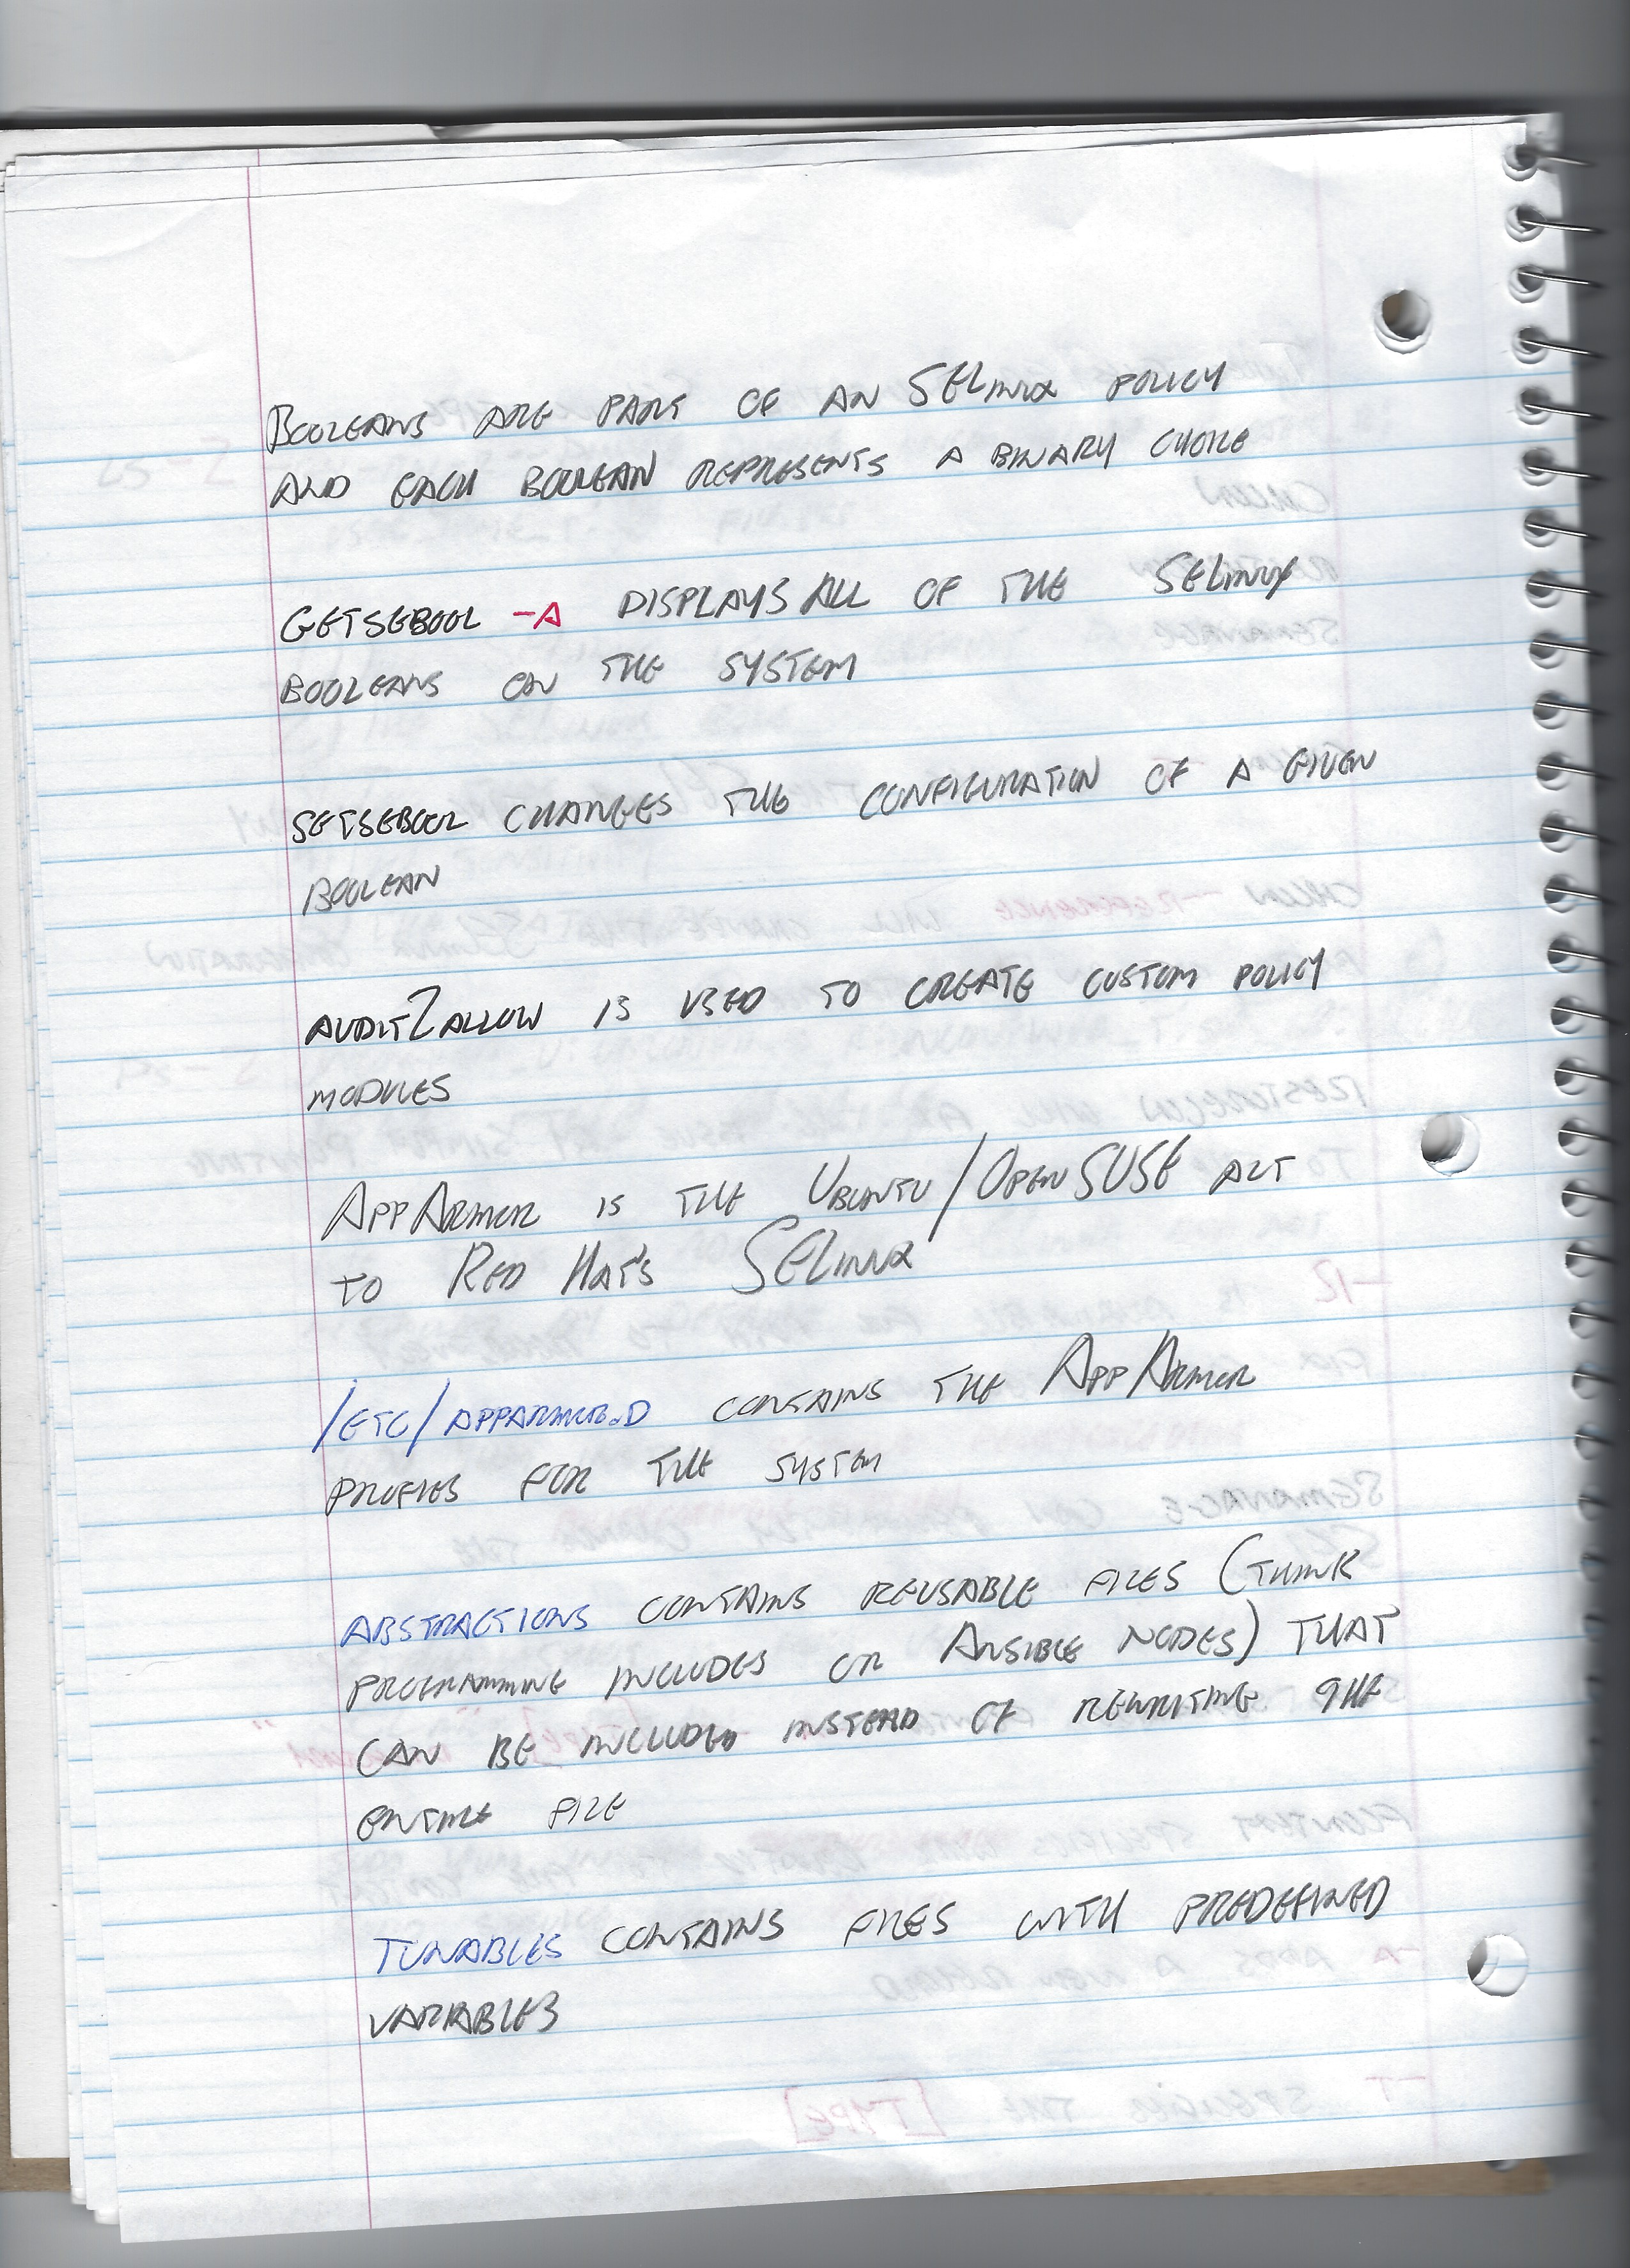 BOOLEANS ARE PART OF AN SELINUX POLICY
AND EACH BOOLEAN REPRESENTS A BINARY CHOICE
GETSEBOOL -A DISPLAYS ALL OF THE SELINUX
BOOLEANS ON THE SYSTEM
SETSEBOOL CHANGES THE CONFIGURATION OF A GIVEN
BOOLEAN
AUDIT2ALLOW IS USED TO CREATE CUSTOM POLICY
MODULES
APPARMOR IS THE UBUNTU/OPENSUSE ALT
TO RED HAT'S SELINUX
/ETC/APPARMOR.D CONTAINS THE APPARMOR
PROFIES FOR THE SYSTEM
ABSTRACTIONS CONTAINS REUSABLE FILES (THINK
PROGRAMMING INCLUDES OR ANSIBLE NODES) THAT
CAN BE INCLUDED INSTEAD OF REWRITING THE
ENTIRE FILE
TUNABLES CONTAINS FILES WITH PREDEFINED
VARIABLES